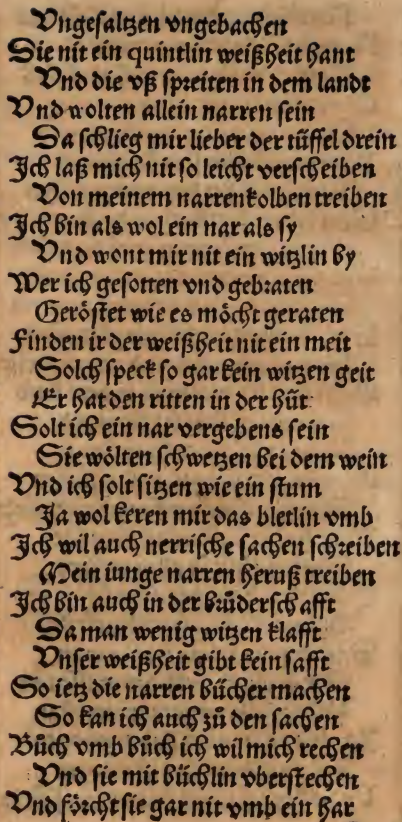 Vngesaltzen vngebachen
Sie nit ein quintlin weißheit hant
Vnd die vß spreiten in dem landt
Vnd wolten allein narren sein
Da schlieg mir lieber der tüffel drein
Ich laß mich nit so leicht verscheiben
Von meinem narrenkolben treiben
Ich bin als wol ein nar als sy
Vnd wont mir nit ein witzlin by
Wer ich gesotten vnd gebraten
Geröstet wie es möcht geraten
Finden ir der weißheit nit ein meit
Solch speck so gar kein witzen geit
Er hat den ritten in der hüt
Solt ich ein nar vergebens sein
Sie wölten schwetzen bei dem wein
Vnd ich solt sitzen wie ein stum
Ja wol keren mir das bletlin vmb
Ich wil auch nerrische sachen schreiben
Mein iunge narren heruß treiben
Ich bin auch in der brüderschafft
Da man wenig witzen klafft
Vnser weißheit gibt kein safft
So ietz die narren bücher machen
So kan ich auch zů den sachen
Bůch vmb bůch ich wil mich rechen
Vnd sie mit büchlin vberstechen
Vnd förcht sie gar nit vmb ein har